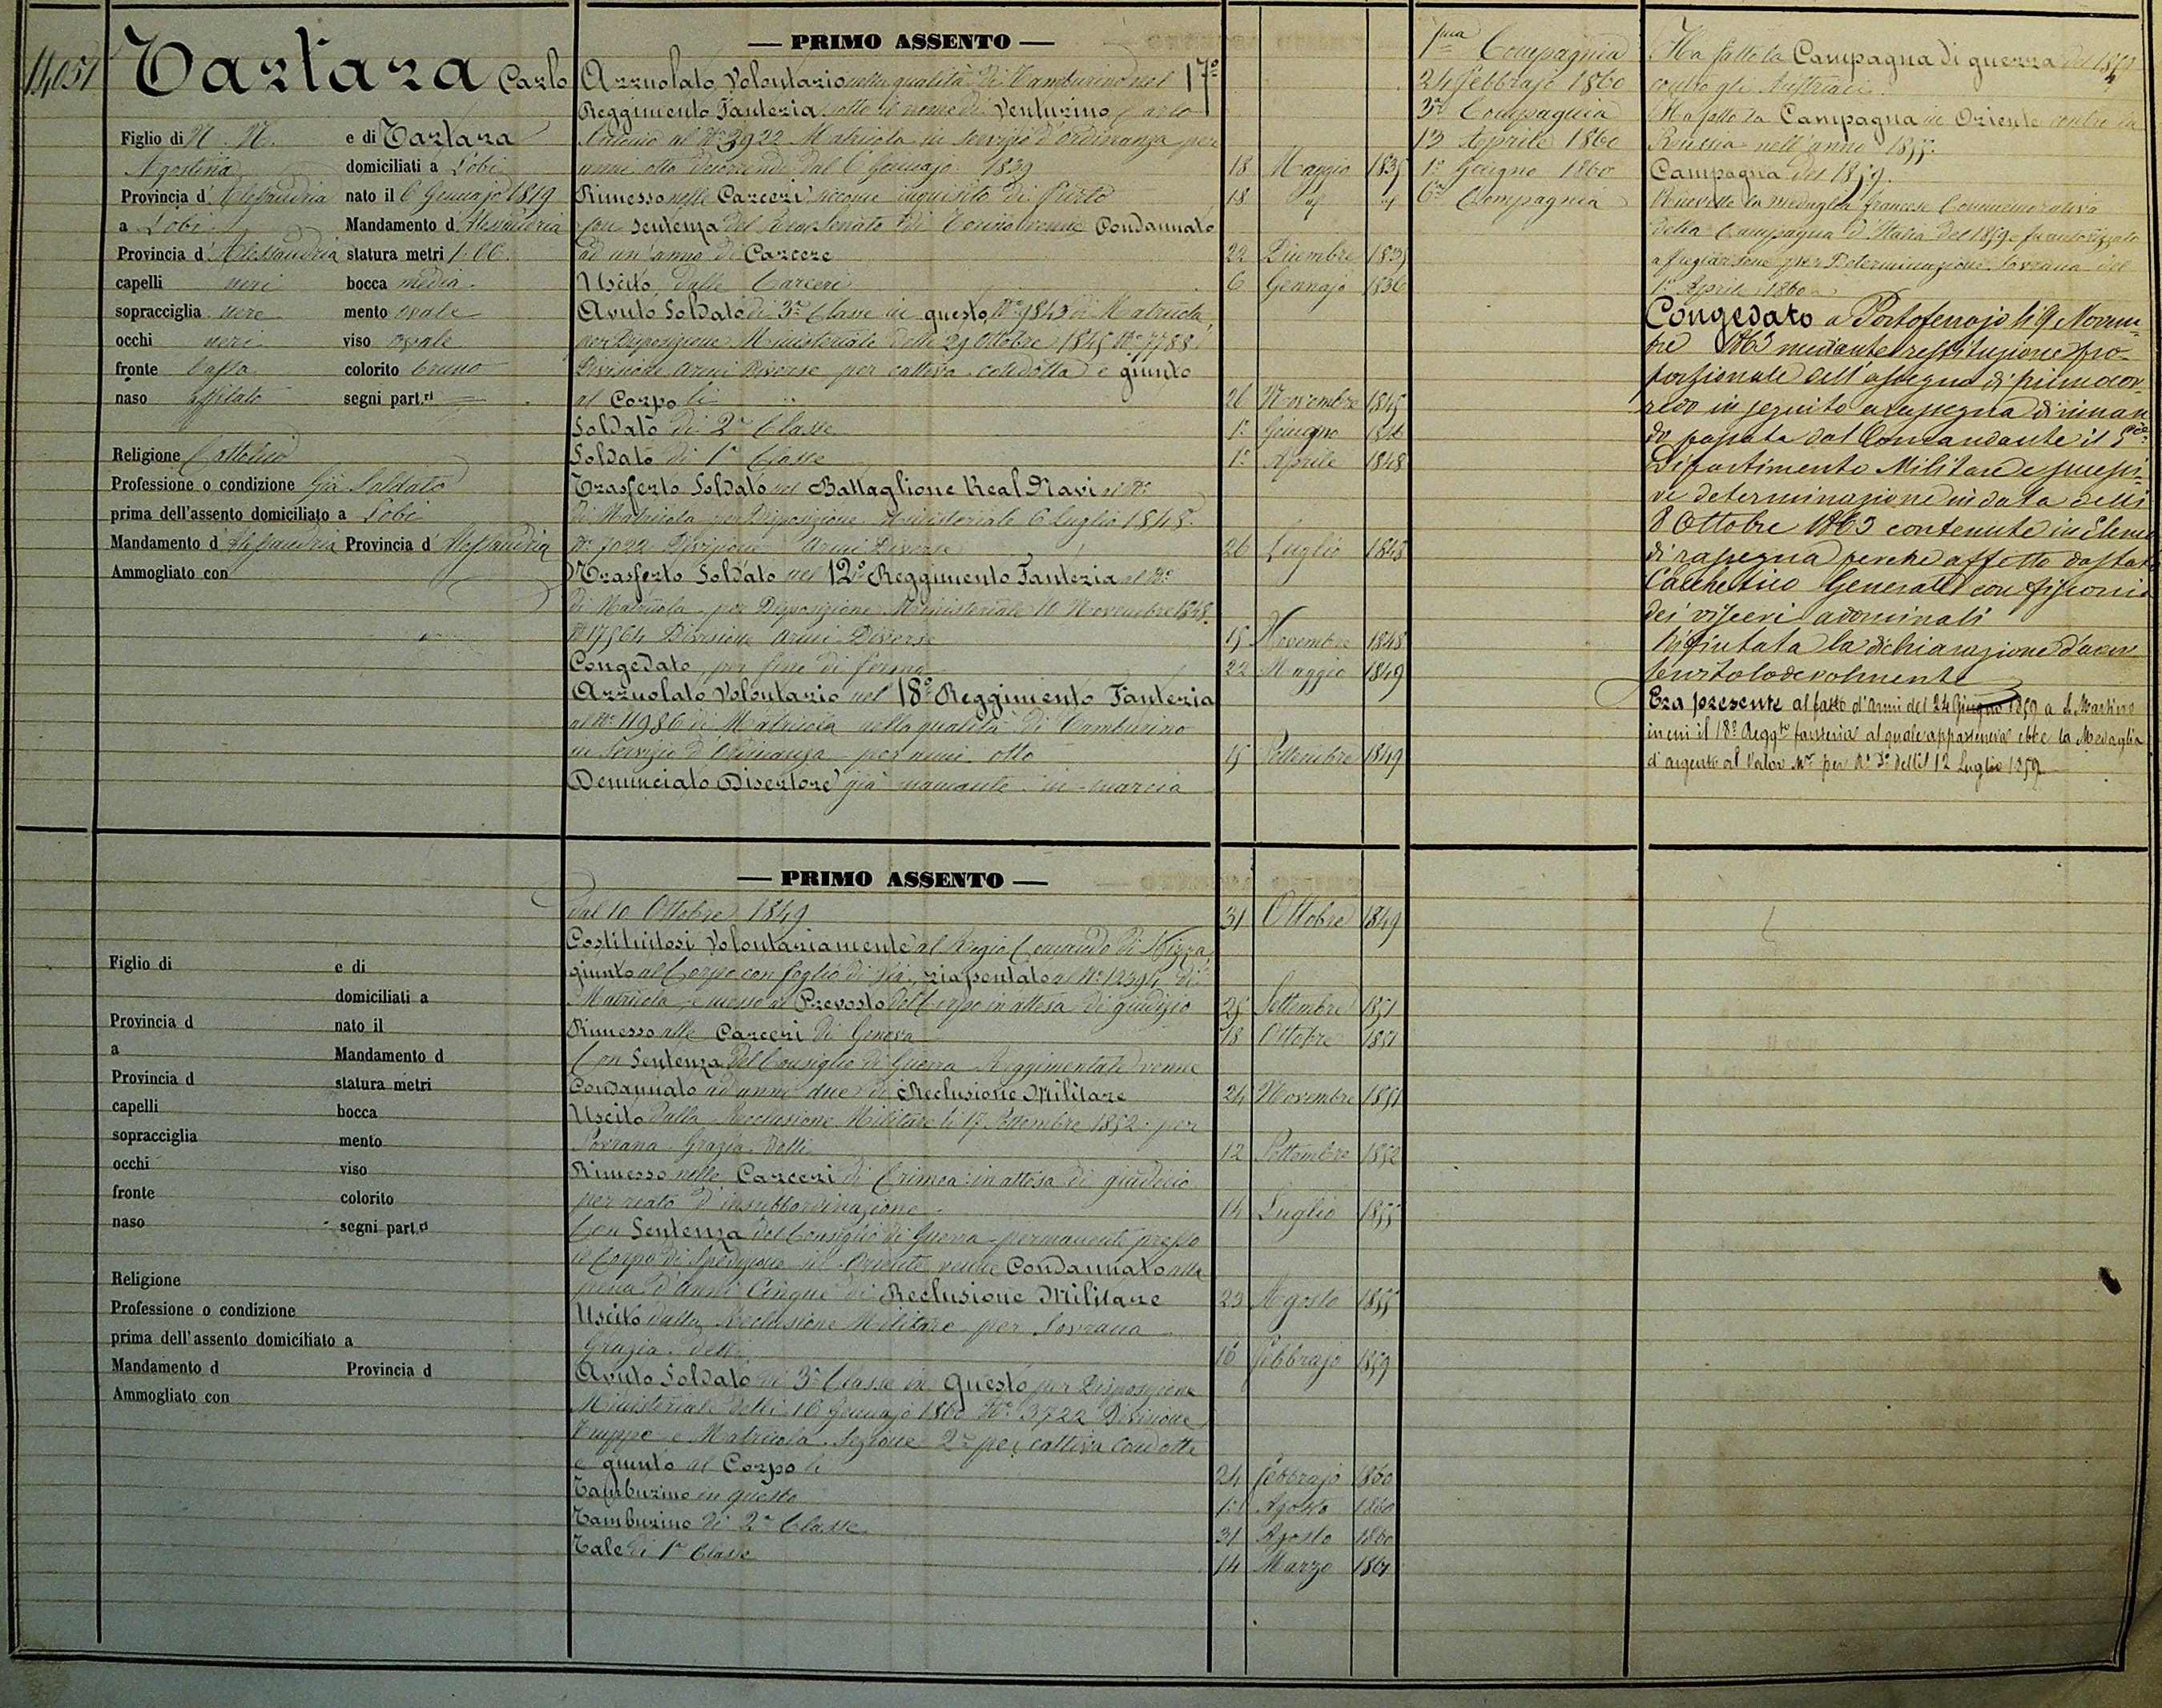 14051
Tartara Carlo
Figlio di N. N. e di Tartara
Agostina domiciliati a Lobi
Provincia d'Alessandria nato il 6 Gennajo 1819
a Lobi Mandamento d'Alessandria
Provincia d'Alessandria statura metri 1.66.
capelli neri bocca media
sopracciglia nere mento ovale
occhi neri viso ovale
fronte bassa colorito bruno
naso affilato segni part.ri
Religione Cattolica
Professione o condizione Già Soldato
prima dell'assento domiciliato a Lobi
Mandamento d'Alessandria Provincia d'Alessandria
Ammogliato con
— PRIMO ASSENTO —
Arruolato Volontario nella qualità di Tamburino nel 17°
Reggimento Fanteria sotto il nome di Venturino Carlo
Antonio al N° 3922 Matricola in servizio d'ordinanza per
anni otto decorrendi dal 6 Gennajo 1839 18 Maggio 1835
Rimesso nelle Carceri siccome inquisito di Furto 18 id id
Con sentenza del di Torino venne Condannato
ad un anno di Carcere 22 Dicembre 1835
Uscito dalle Carceri 6 Gennajo 1836
Avuto Soldato di 3a Classe in questo N° 9843 di Matricola
per Disposizione Ministeriale delli 29 Ottobre 1845 N° 7788
Divisione Armi Diverse per cattiva condotta e giunto
al Corpo li 26 Novembre 1845
Soldato di 2a Classe 1° Giugno 1846
Soldato di 1a Classe 1° Aprile 1848
Trasferto Soldato nel Battaglione Real Navi al N°
di Matricola per Disposizione Ministeriale 6 Luglio 1848.
N° 7022 Divisione Armi Diverse 26 Luglio 1848
Trasferto Soldato nel 12° Reggimento Fanteria al N°
di Matricola per Disposizione Ministeriale 10 Novembre 1848.
N° 17564 Divisione Armi Diverse 15 Novembre 1848
Congedato per fine di ferma 22 Maggio 1849
Arruolato Volontario nel 18° Reggimento Fanteria
al N° 11986 di Matricola nella qualità di Tamburino
in Servizio d'Ordinanza per anni otto 15 Settembre 1849
Denunciato Disertore già mancante in marcia
1ma Compagnia
24 Febbrajo 1860
3a Compagnia
13 Aprile 1860
1° Giugno 1860
6a Compagnia
Ha fatto la Campagna di guerra del 1849
contro gli Austriaci.
Ha fatto la Campagna in Oriente contro la
Russia nell'anno 1855.
Campagna del 1859.
Ricevette la medaglia francese Commemorativa
della Campagna d'Italia del 1859 fu autorizzato
a fregiarsene per Determinazione Sovrana del
1° Aprile 1860
Congedato a Portoferrajo li 9 Novem-
bre 1863 mediante restituzione pro-
porzionale dell'assegno di primo cor
redo in seguito a rassegna di riman
do passata dal Comandante il 5to
Dipartimento Militare e successi-
ve determinazione in data delli
8 Ottobre 1863 contenute in Elenco
di rassegna perchè affetto da stato
Cachetico Generale con fisconia
dei visceri addominali
Rifiutata la dichiarazione d'aver
servito lodevolmente
Era presente al fatto d'armi del 24 Giugno 1859 a S. Martino
in cui il 18° Regg.to fanteria al quale apparteneva ebbe la Medaglia
d'argento al Valor Mre per R° D° delli 12 Luglio 1859
— PRIMO ASSENTO —
Figlio di e di
domiciliati a
Provincia d nato il
a Mandamento d
Provincia d statura metri
capelli bocca
sopracciglia mento
occhi viso
fronte colorito
naso segni part.ri
Religione
Professione o condizione
prima dell'assento domiciliato a
Mandamento d Provincia d
Ammogliato con
dal 10 Ottobre 1849 31 Ottobre 1849
Costituitosi Volontariamente al Regio Comando di Nizza,
giunto al Corpo con foglio di via, riassentato al N° 12394 di
Matricola, e messo al Prevosto del Corpo in attesa di giudizio 25 Settembre 1851
Rimesso alle Carceri di Genova 18 Ottobre 1851
Con Sentenza del Consiglio di Guerra Reggimentale venne
Condannato ad anni due di Reclusione Militare 24 Novembre 1851
Uscito dalla Reclusione Militare li 17 Settembre 1852 per
Sovrana Grazia delli 12 Settembre 1852
Rimesso nelle Carceri di Crimea in attesa di giudicio
per reato d'insubbordinazione 14 Luglio 1855
Con Sentenza del Consiglio di Guerra permanente presso
il Corpo di Spedizione in Oriente venne Condannato alla
pena d'anni Cinque di Reclusione Militare 23 Agosto 1855
Uscito dalla Reclusione Militare per Sovrana
Grazia delli 16 Febbrajo 1859
Avuto Soldato di 3a Classe in Questo per Disposizione
Ministeriale delli 16 Gennajo 1860 N° 3722 Divisione
Truppe e Matricola Sezione 2a per cattiva condotta
e giunto al Corpo li 24 Febbrajo 1860
Tamburino in questo 1° Agosto 1860
Tamburino di 2a Classe 31 Agosto 1860
Tale di 1a Classe 14 Marzo 1861